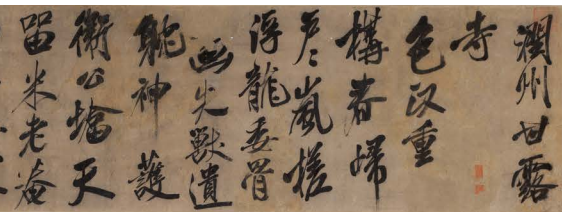 潤州甘露
寺
色改重
構春歸
戶〻嵐槎
浮龍委骨
画失獸遺
耽神護
衛公塔天
留米老菴